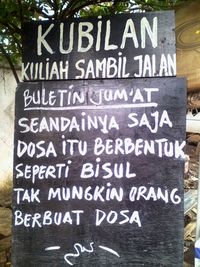 KUBILAN
KULIAH SAMBIL JALAN
BULETIN JUM'AT
SEANDAINYA SAJA
DOSA ITU BERBENTUK
SEPERTI BISUL
TAK MUNGKIN ORANG
BERBUAT DOSA